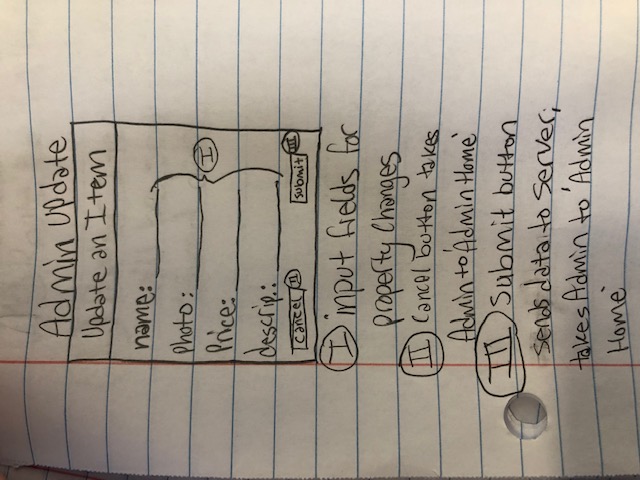 Admin Update
Update an Item
name:
photo:
Price:
I
descrip.:
cancel II
submit III
I input fields for
property changes
II Cancel button takes
Admin to 'Admin Home'
III Submit button
sends data to server;
takes Admin to 'Admin
Home'